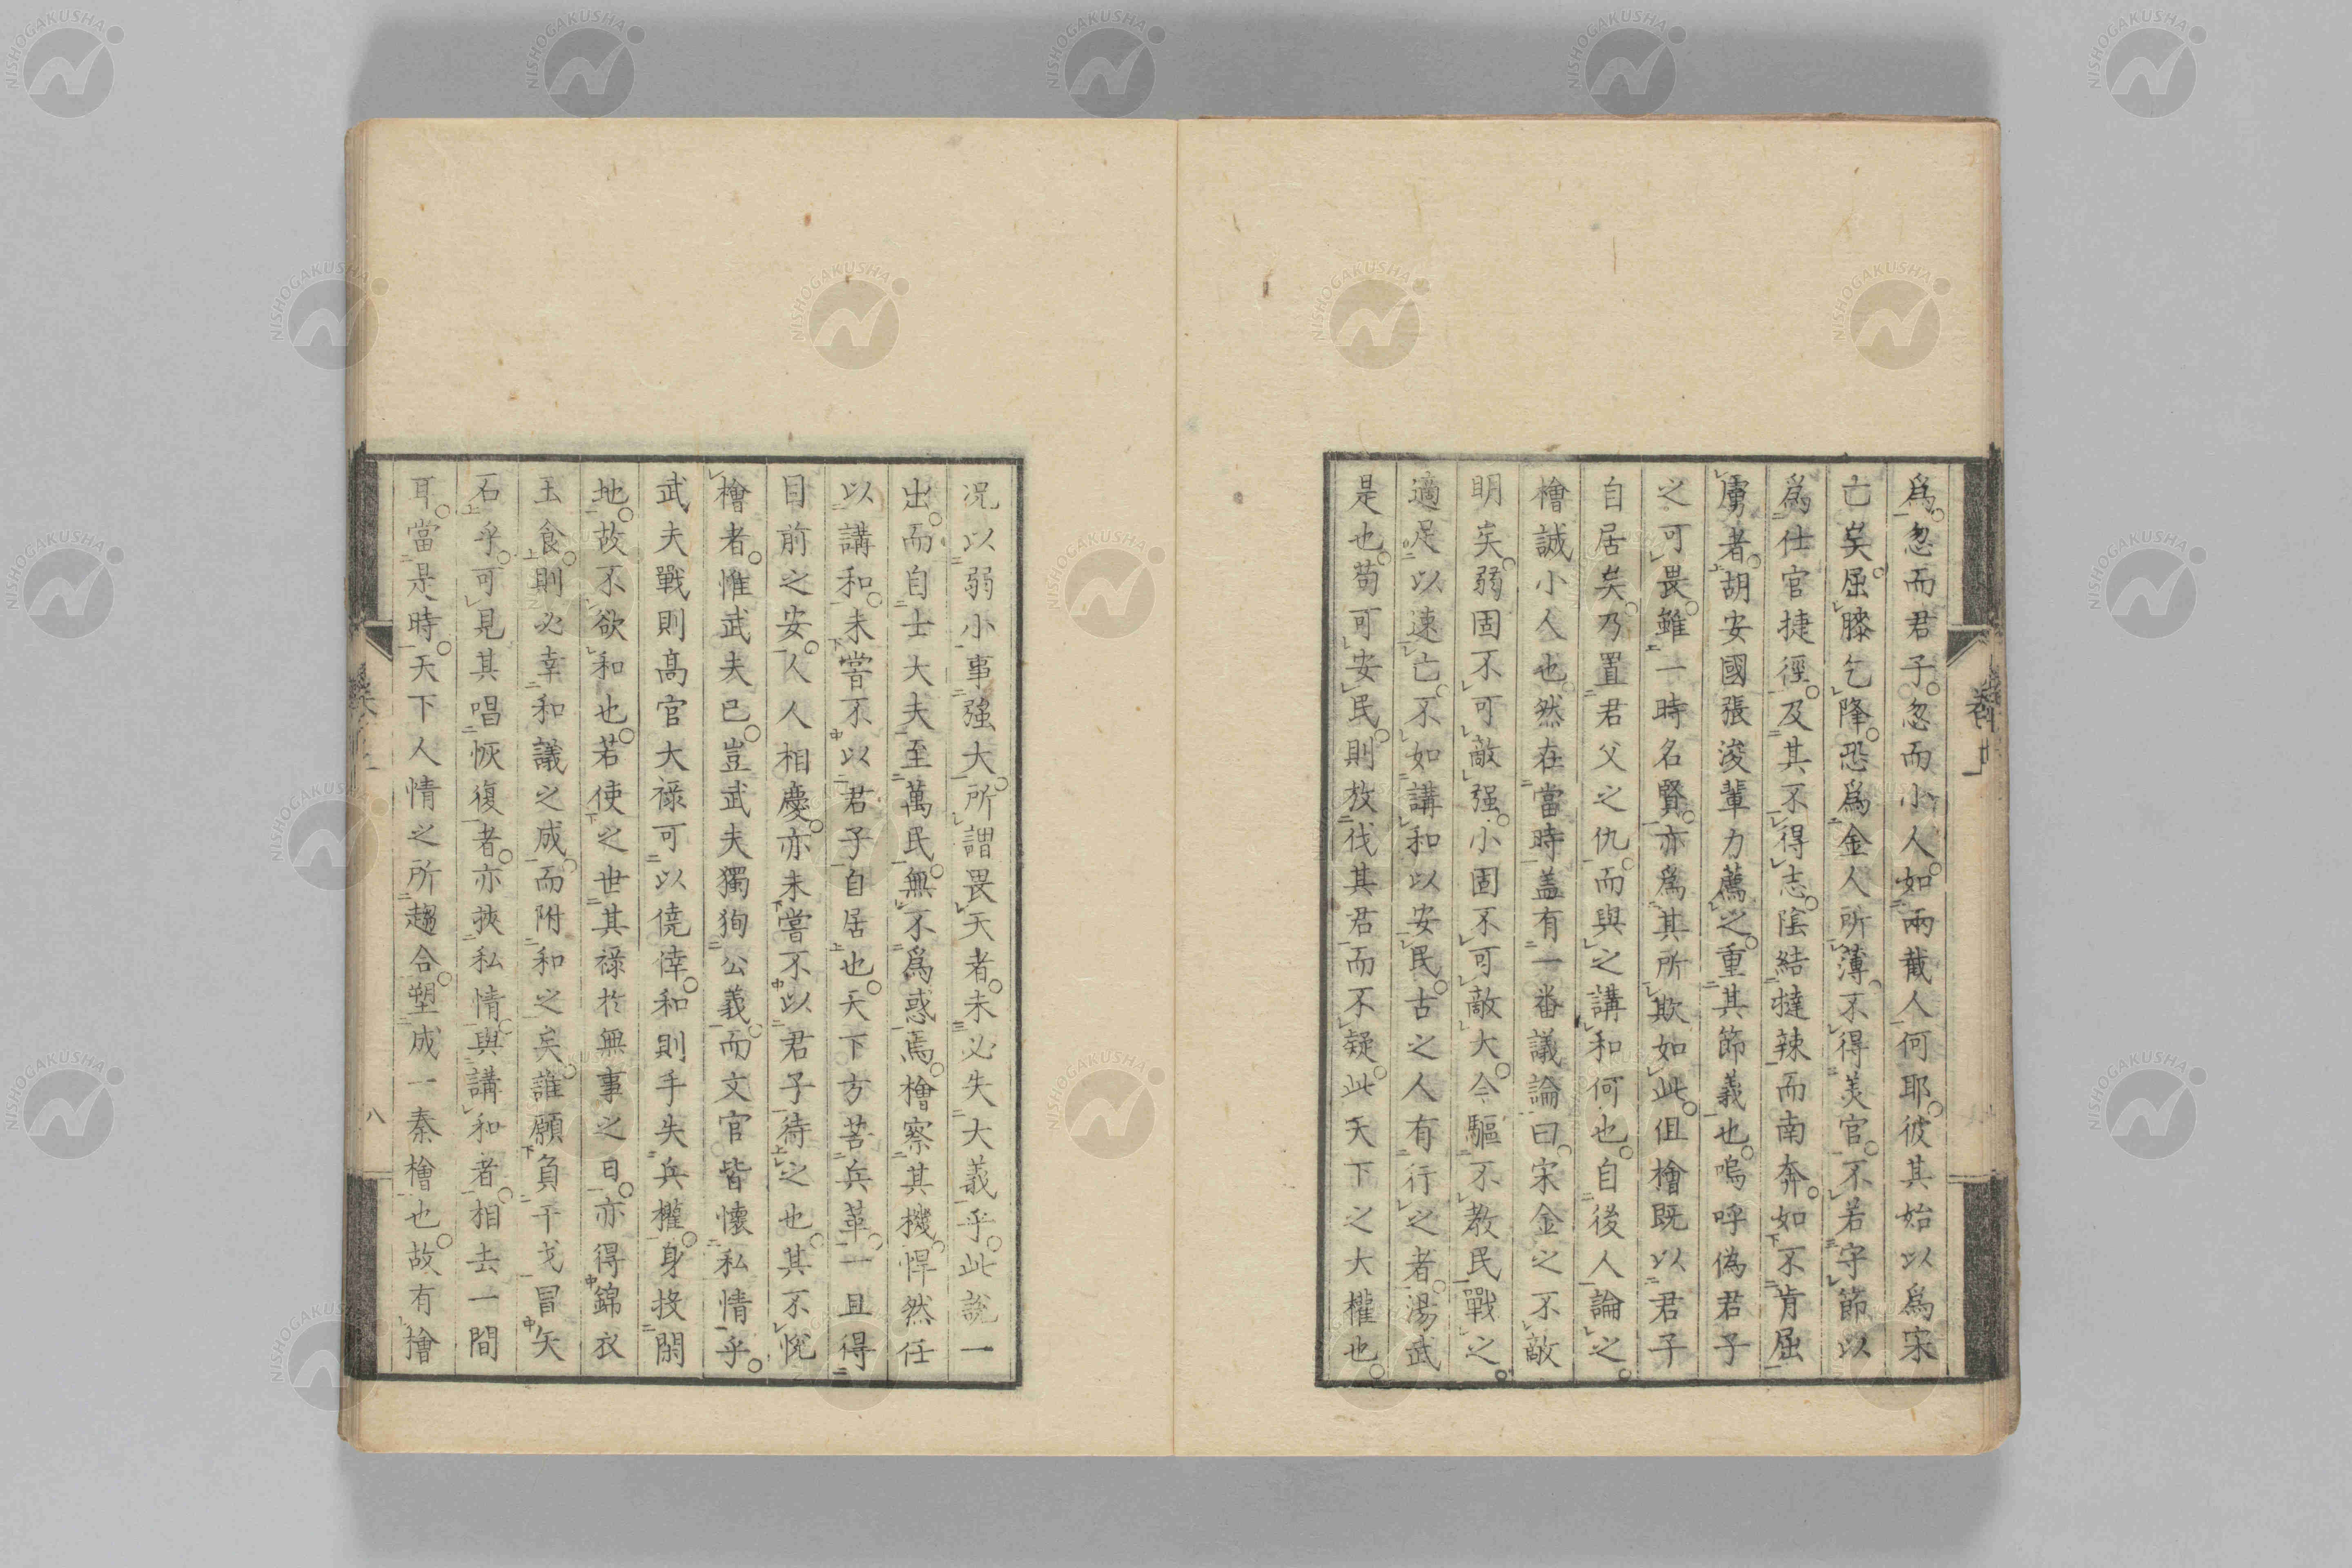 爲忽而君子忽而小人如兩截人何耶彼其始以爲宋
亡矣屈膝乞降恐爲金人所薄不得美官不若守節以
爲仕官捷徑及其不得志陰結撻辣而南奔如不肯屈
虜者胡安國張浚輩力薦之重其節義也嗚呼偽君子
之可畏雖一時名賢亦爲其所欺如此但檜既以君子
自居矣乃置君父之仇而與之講和何也自後人論之
檜誠小人也然在當時蓋有一番議論曰宋金之不敵
明矣弱固不可敵强小固不可敵大今驅不教民戰之
適足以速亡不如講和以安民古之人有行之者湯武
是也苟可安民則放伐其君而不疑此天下之大權也
况以弱小事强大所謂畏天者未必失大義乎此說一
出而自士大夫至萬民無不爲惑焉檜察其機悍然任
以講和未嘗不以君子自居也天下方苦兵革一旦得
目前之安人人相慶亦未嘗不以君子待之也其不悅
檜者惟武夫已豈武夫獨狥公義而文官皆懷私情乎
武夫戰則高官大祿可以僥倖和則手失兵權身投閑
地故不欲和也若使之世其祿於無事之日亦得錦衣
玉食則必幸和議之成而附和之矣誰願負干戈冒矢
石乎可見其唱恢復者亦挾私情與講和者相去一間
耳當是時天下人情之所趨合塑成一秦檜也故有檜
八
NISHOGAKUSHA